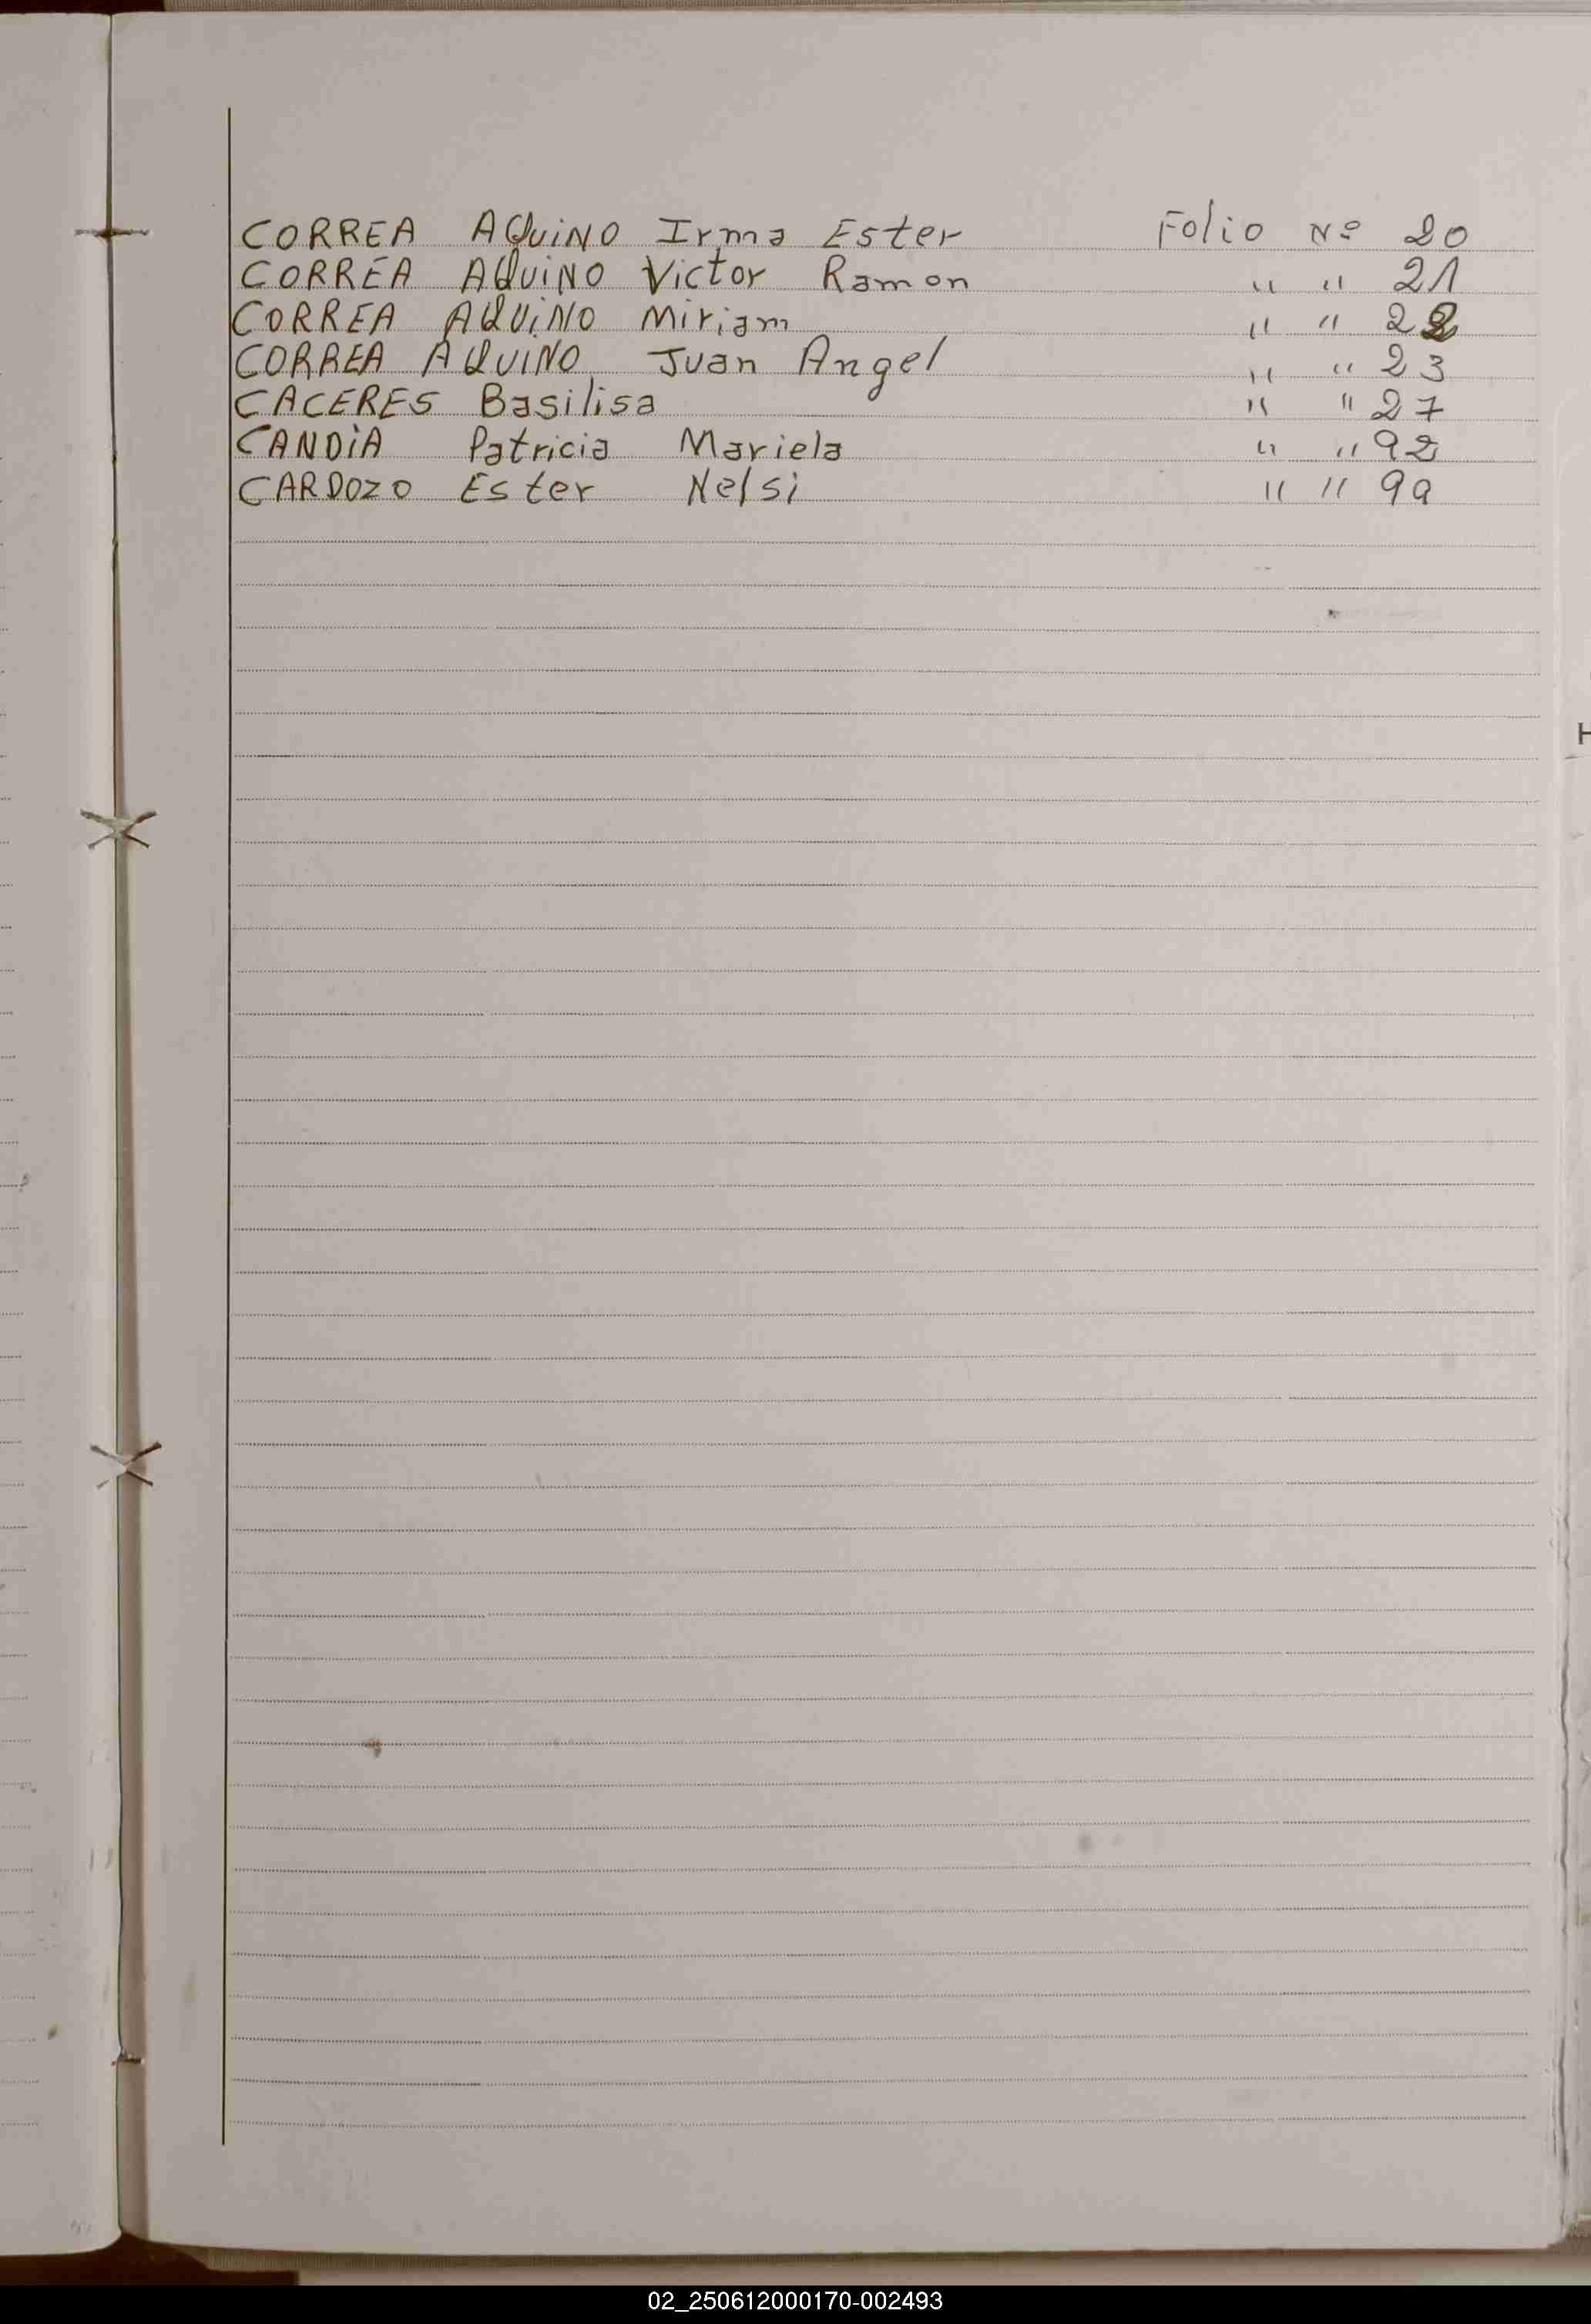 CORREA AQuiNO Irma Ester Folio Nº 20
CORREA AQuiNO Victor Ramon " " 21
CORREA AQUiNO Miriam " " 22
CORREA AQUINO Juan Angel " " 23
CACERES Basilisa " " 27
CANDiA Patricia Mariela " " 92
CARDOZO Ester Nelsi " " 99
H
02_250612000170-002493